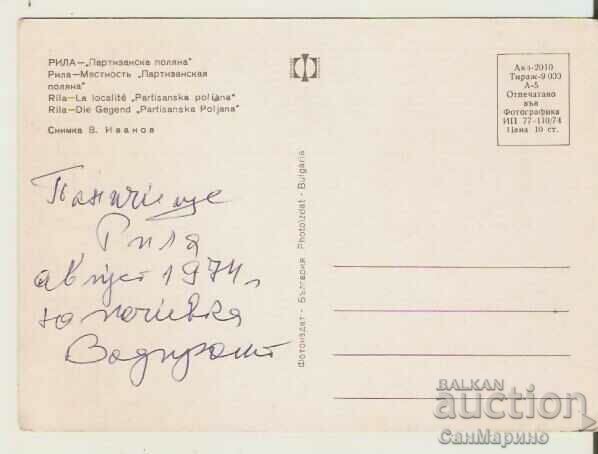 РИЛА—„Партизанска поляна"
Рила—Местность „Партизанская
поляна"
Rila—La localité "Partisanska poljana"
Rila—Die Gegend „Partisanska Poljana"
Снимка В. Иванов
Акл-2010
Тираж-9 033
А-5
Отпечатано
във
Фотографика
ИП 77-110/74
Цена 10 ст.
Паничище
Рила
август 1974 г.
почивка
Фотоиздат - България Photoizdat - Bulgaria
BALKAN
auction
СанМарино